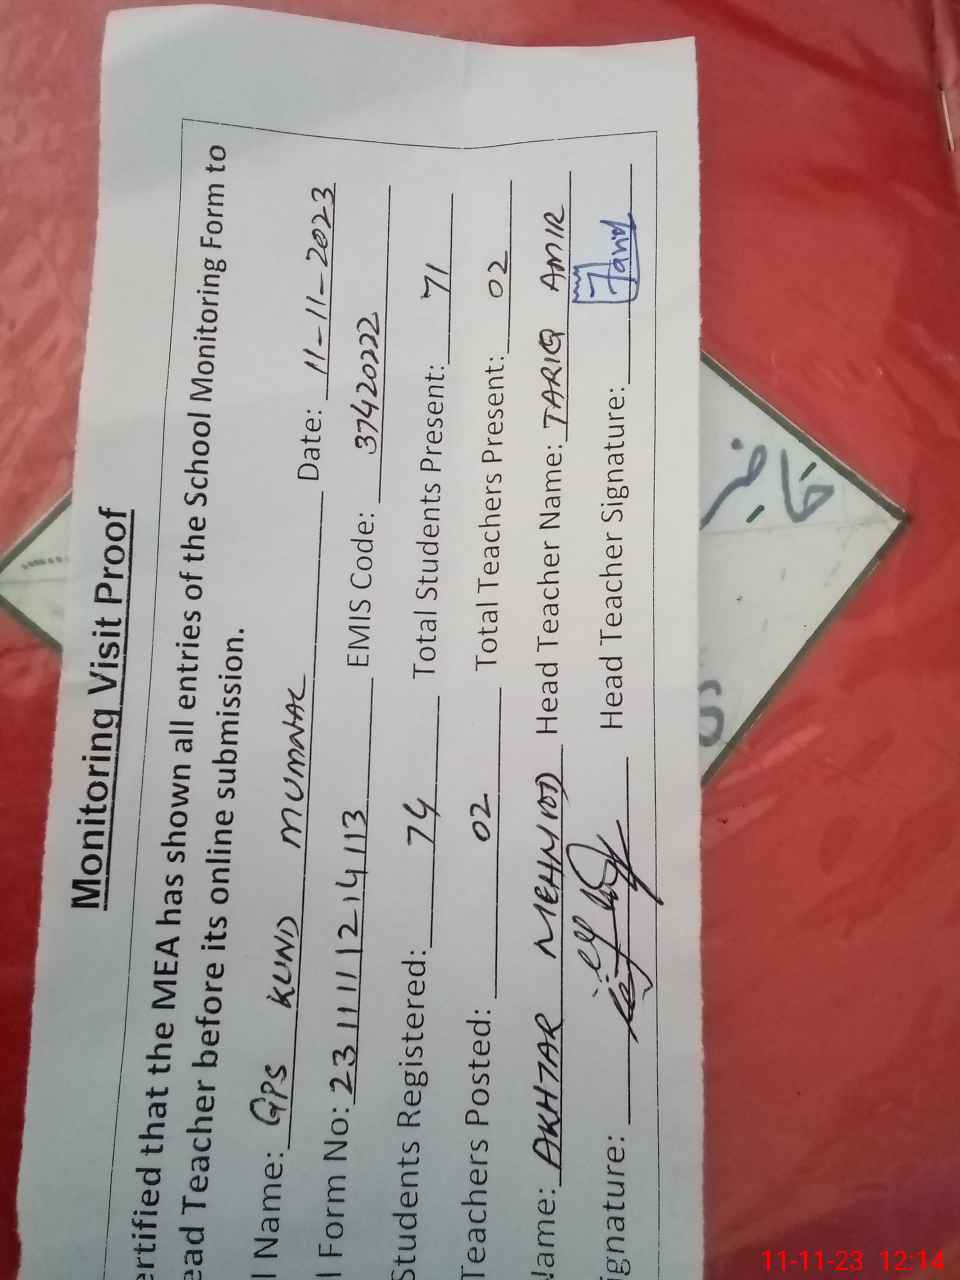 Monitoring Visit Proof
ertified that the MEA has shown all entries of the School Monitoring Form to
ead Teacher before its online submission.
l Name: GPS KUND MUMNAK Date: 11-11-2023
l Form No: 23 11 11 1214113 EMIS Code: 37420222
Students Registered: 74 Total Students Present: 71
Teachers Posted: 02 Total Teachers Present: 02
Name: AKHTAR MEHMOOD Head Teacher Name: TARIQ AMIR
ignature: Head Teacher Signature: Tariq
حاضر
11-11-23 12:14